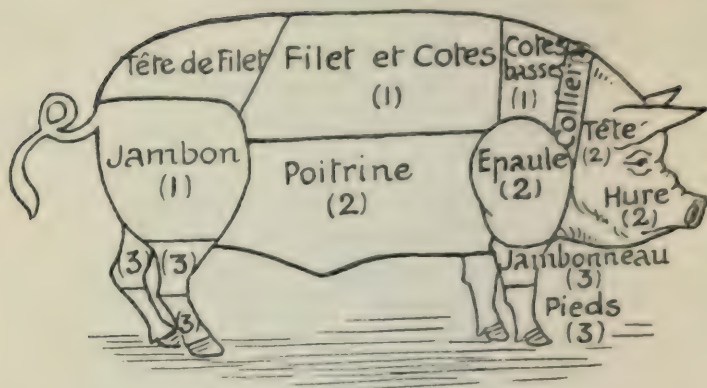 Tête de Filet
Filet et Cotes
(1)
Cotes
basse
(1)
Collier
Tête
(2)
Hure
(2)
Jambon
(1)
Poitrine
(2)
Epaule
(2)
(3)
(3)
(3)
Jambonneau
(3)
Pieds
(3)